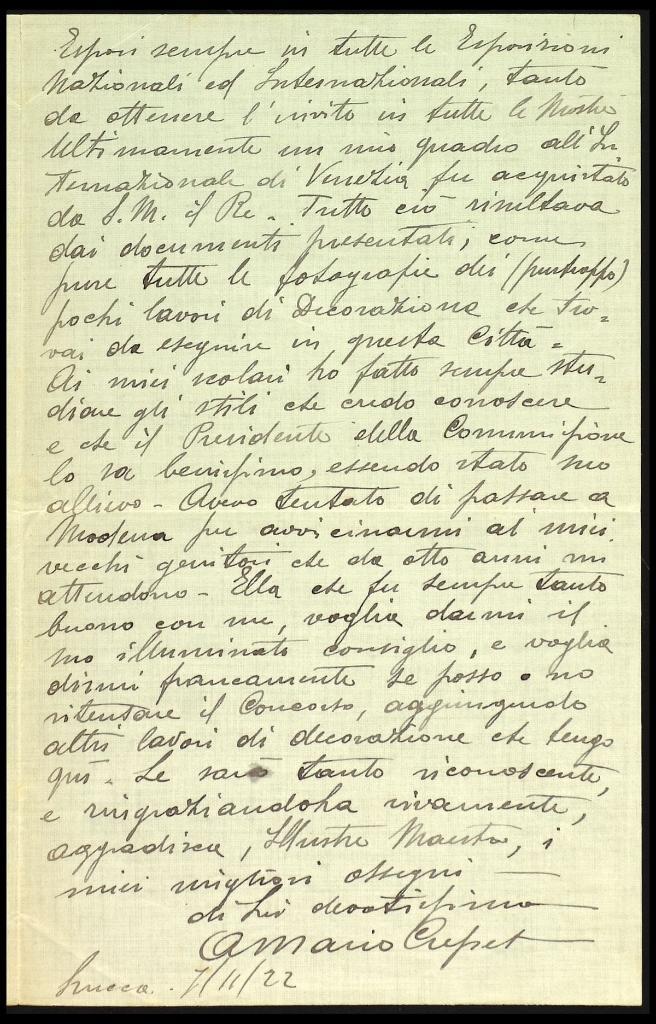 Esposi sempre in tutte le Esposizioni
Nazionali ed Internazionali, tanto
da ottenere l'invito in tutte le Mostre
Ultimamente un mio quadro all'In
ternazionale di Venezia fu acquistato
da S.M. il Re. Tutto ciò risultava
dai documenti presentati, come
pure tutte le fotografie dei (purtroppo)
pochi lavori di Decorazione che tro=
vai da eseguire in questa Città=
Ai miei scolari ho fatto sempre stu=
diare gli stili che credo conoscere
e che il Presidente della Commissione
lo sa benissimo, essendo stato suo
allievo - Avevo tentato di passare a
Modena per avvicinarmi ai miei
vecchi genitori che da otto anni mi
attendono - Ella che fu sempre tanto
buono con me, voglia darmi il
suo illuminato consiglio, e voglia
dirmi francamente se posso o no
ritentare il Concorso, aggiungendo
altri lavori di decorazione che tengo
quì. Le sarò tanto riconoscente,
e ringraziandoLa vivamente,
aggradisca, Illustre Maestro, i
miei migliori ossequi
di Lei devotissimo
A Mario Crepet
Lucca. 7/11/22